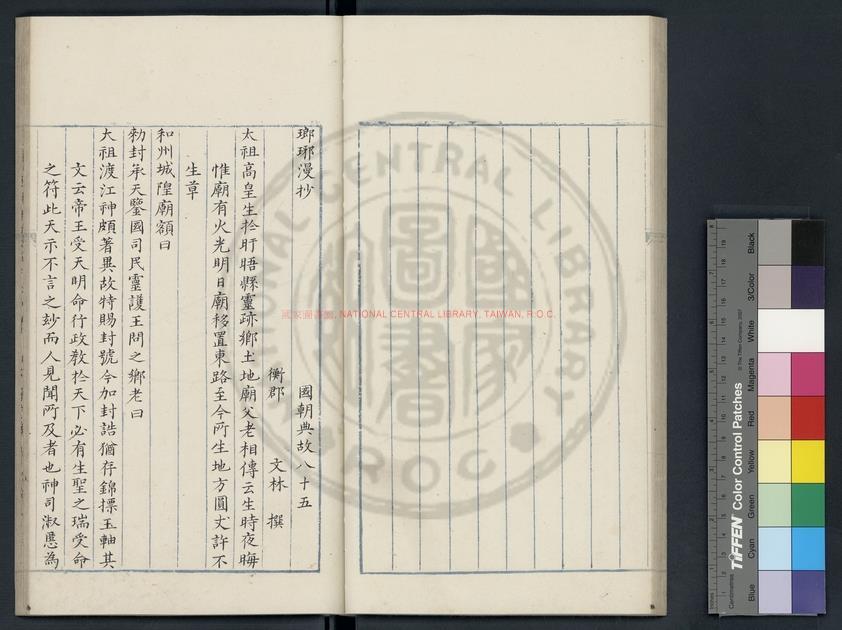 瑯琊漫抄 國朝典故八十五
衡郡 文林 撰
太祖高皇生於盱眙縣靈跡鄉土地廟父老相傳云生時夜晦
惟廟有火光明日廟移置東路至今所生地方圓丈許不
生草
和州城隍廟額曰
勑封承天鑒國司民靈護王問之鄉老曰
大祖渡江神頗著異故特賜封號今加封誥猶存錦摽玉軸其
文云帝王受天明命行政教於天下必有生聖之瑞受命
之符此天示不言之玅而人見聞所及者也神司淑慝為
國家圖書館, NATIONAL CENTRAL LIBRARY, TAIWAN, R.O.C.
NATIONAL CENTRAL LIBRARY
ROC
TIFFEN Color Control Patches
© The Tiffen Company, 2007
Inches
Centimetres
Blue
Cyan
Green
Yellow
Red
Magenta
White
3/Color
Black